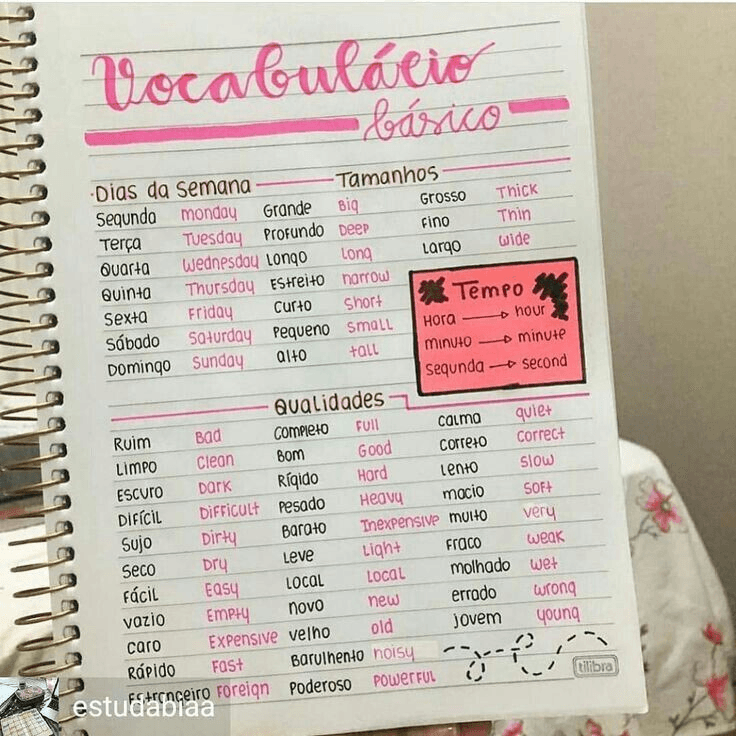 Vocabulário
básico
Dias da Semana Tamanhos
Segunda monday Grande Big Grosso Thick
Terça Tuesday Profundo Deep Fino Thin
Quarta Wednesday Longo Long Largo wide
Quinta Thursday Estreito narrow
Sexta Friday Curto Short
Sábado Saturday Pequeno Small
Domingo Sunday alto tall
Tempo
Hora hour
minuto minute
Segunda second
Qualidades
Ruim Bad Completo Full calma quiet
Limpo Clean Bom Good correto correct
Escuro Dark Rígido Hard Lento Slow
Difícil Difficult Pesado Heavy macio Soft
Sujo Dirty Barato Inexpensive muito very
Seco Dry Leve Light Fraco weak
Fácil Easy Local Local molhado wet
vazio Empty novo new errado wrong
caro Expensive velho old Jovem young
Rápido Fast Barulhento noisy
Estrangeiro Foreign Poderoso Powerful
tilibra
estudabiaa